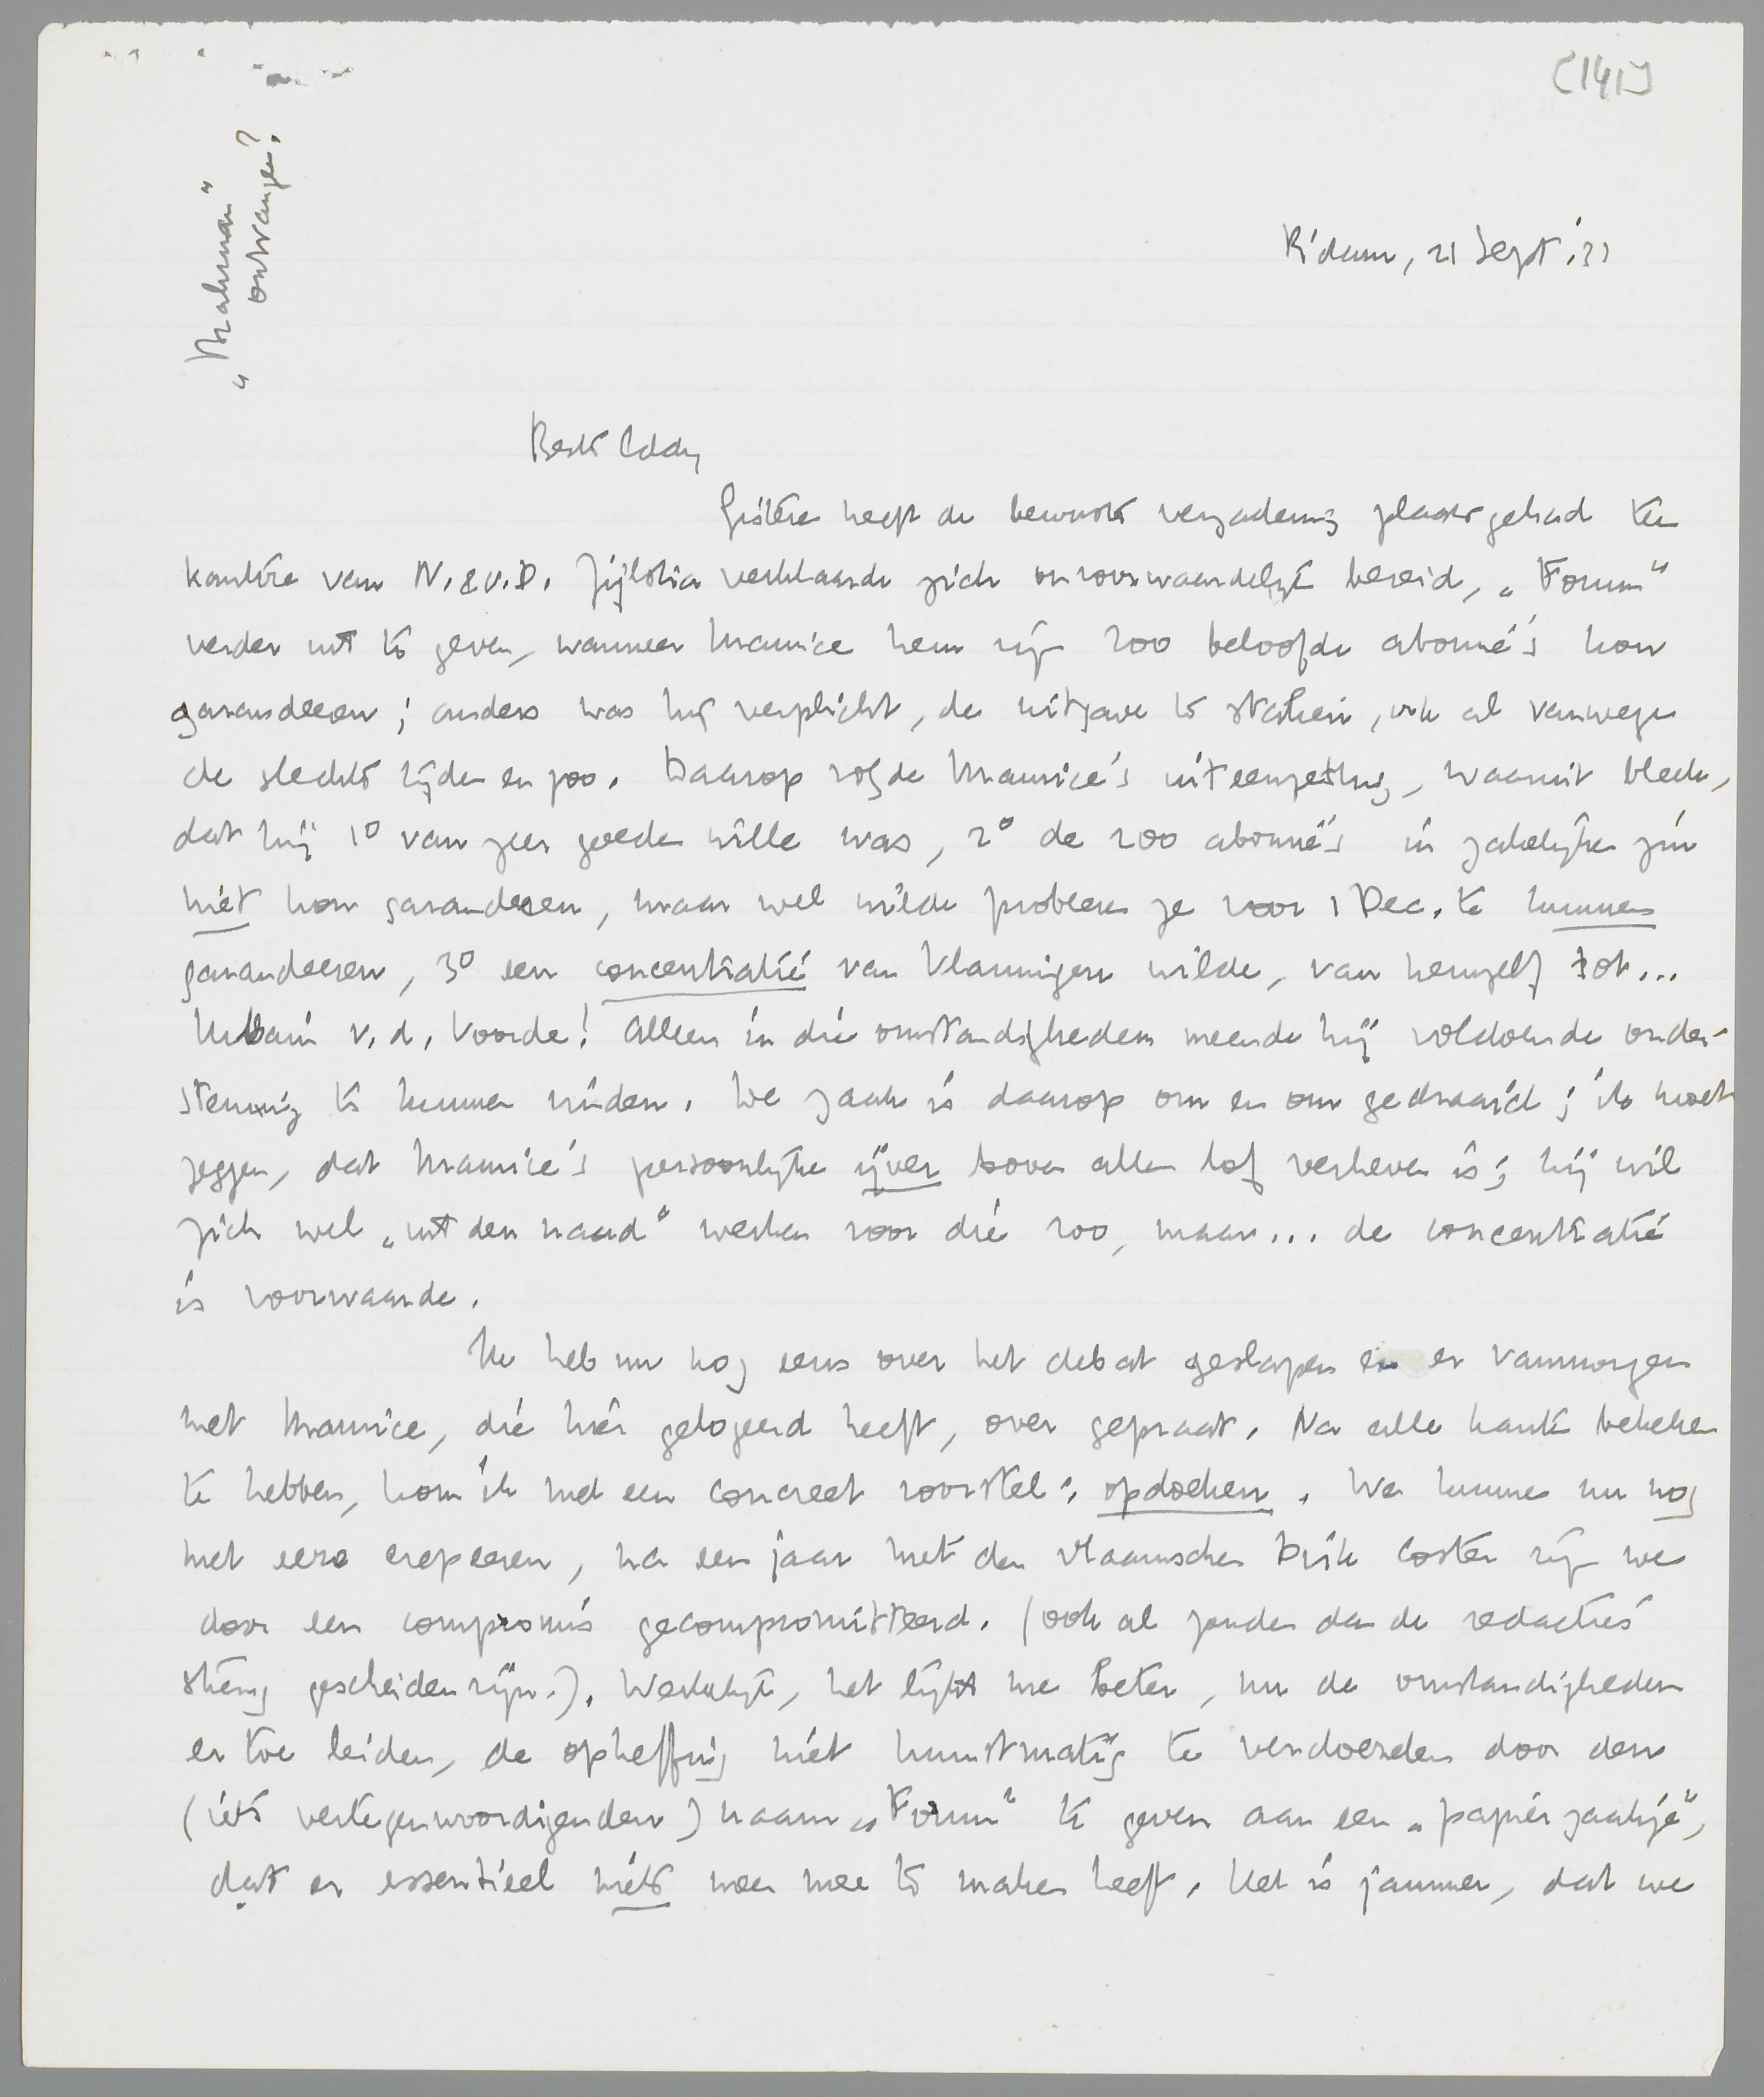 [141]
"Mahman"
ontvangen?
R'dam, 21 Sept '33
Beste Eddy
Gisteren heeft de bewuste vergadering plaats gehad ten
kantore van N. & v. D. Zijlstra verklaarde zich onvoorwaardelijk bereid, „Forum"
verder uit te geven, wanneer Maurice hem zijn 200 beloofde abonné's kon
garandeeren; anders was hij verplicht, de uitgave te staken, ook al vanwege
de slechte tijden en zoo. Daarop volgde Maurice's uiteenzetting, waaruit bleek,
dat hij 1° van zeer goeden wille was, 2° de 200 abonné's in zakelijken zin
niet kon garandeeren, maar wel wilde probeeren ze voor 1 Dec. te kunnen
garandeeren, 3° een concentratie van Vlamingen wilde, van hemzelf tot...
Urbain v. d. Voorde! Alleen in die omstandigheden meende hij voldoende onder-
steuning te kunnen vinden. De zaak is daarop om en om gedraaid; ik moet
zeggen, dat Maurice's persoonlijke ijver boven allen lof verheven is; hij wil
zich wel „uit den naad" werken voor die 200, maar... de concentratie
is voorwaarde.
Ik heb nu nog eens over het debat geslapen en er vanmorgen
met Maurice, die hier gelogeerd heeft, over gepraat. Na alle kanten bekeken
te hebben, kom ik met een concreet voorstel: opdoeken. We kunnen nu nog
met eere crepeeren, na een jaar met den vlaamschen Dirk Coster zijn we
door een compromis gecompromitteerd. (ook al zouden dan de redacties
streng gescheiden zijn.). Werkelijk, het lijkt me beter, nu de omstandigheden
er toe leiden, de opheffing niet kunstmatig te verdoezelen door den
(iets vertegenwoordigenden) naam „Forum" te geven aan een „papieren zaakje",
dat er essentieel niets meer mee te maken heeft. Het is jammer, dat we